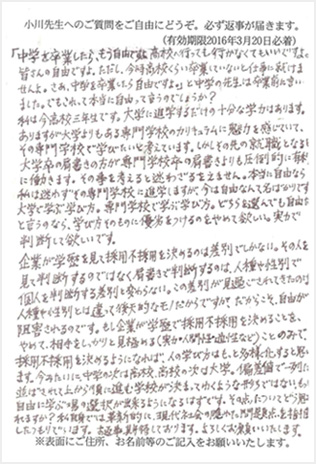 小川先生へのご質問をご自由にどうぞ。必ず返事が届きます。
（有効期限2016年3月20日必着）
「中学を卒業したら、もう自由ですよ。高校へ行っても行かなくてもいいですよ。
皆さん自由ですよ。ただし、今時高校くらい卒業していないと仕事に就けま
せんよ。さあ、中学を卒業したら自由ですよ。」と中学の先生は卒業前に言い
ました。でもこれって本当に自由って言うのでしょうか？
私は今高校三年生です。大学に進学するだけの十分な学力はあります。
ありますが大学よりもある専門学校のカリキュラムに魅力を感じていて、
その専門学校で学びたいと考えています。しかしその先の就職となると
大学卒の肩書きの方が専門学校卒の肩書きよりも圧倒的に有利
に働きます。その事を考えると迷わざるをえません。本当に自由なら
私は迷わずその専門学校に進学しますが、今は自由なんて名ばかりです
大学で学ぶ学び方。専門学校で学ぶ学び方。どちらを選んでも自由だ
と言うのなら、学び方そのものに優劣をつけるのをやめて欲しい。実力で
判断して欲しいです。
企業が学歴を見て採用不採用を決めるのは差別でしかない。その人を
見て判断するのではなく肩書きで判断するのは、人種や性別で
個人を判断する差別と変わらない。この差別が見過ごされてきたのは
人種や性別とは違って後天的なモノだからですか？だからこそ、自由が
阻害されるのです。もし企業が学歴で採用不採用を決めることを
やめて、相手をしっかりと見極める（実力・人間性・適性など）ことのみで、
採用不採用を決めるようになれば、人の学び方はもっと多様化すると思い
ます。今みたいに、中学の次は高校、高校の次は大学。偏差値で一列に
並ばせて上から順に進む学校が決まってゆくような形ではない、もっと
自由に学ぶ場の選択が出来るようになるはずです。その点、先生はどう思わ
れますか？私自身では革新的に、現代社会の隠れた問題点を指摘
したつもりでいます。お返事期待しております。よろしくお願いいたします。
※表面にご住所、お名前等のご記入をお願いいたします。